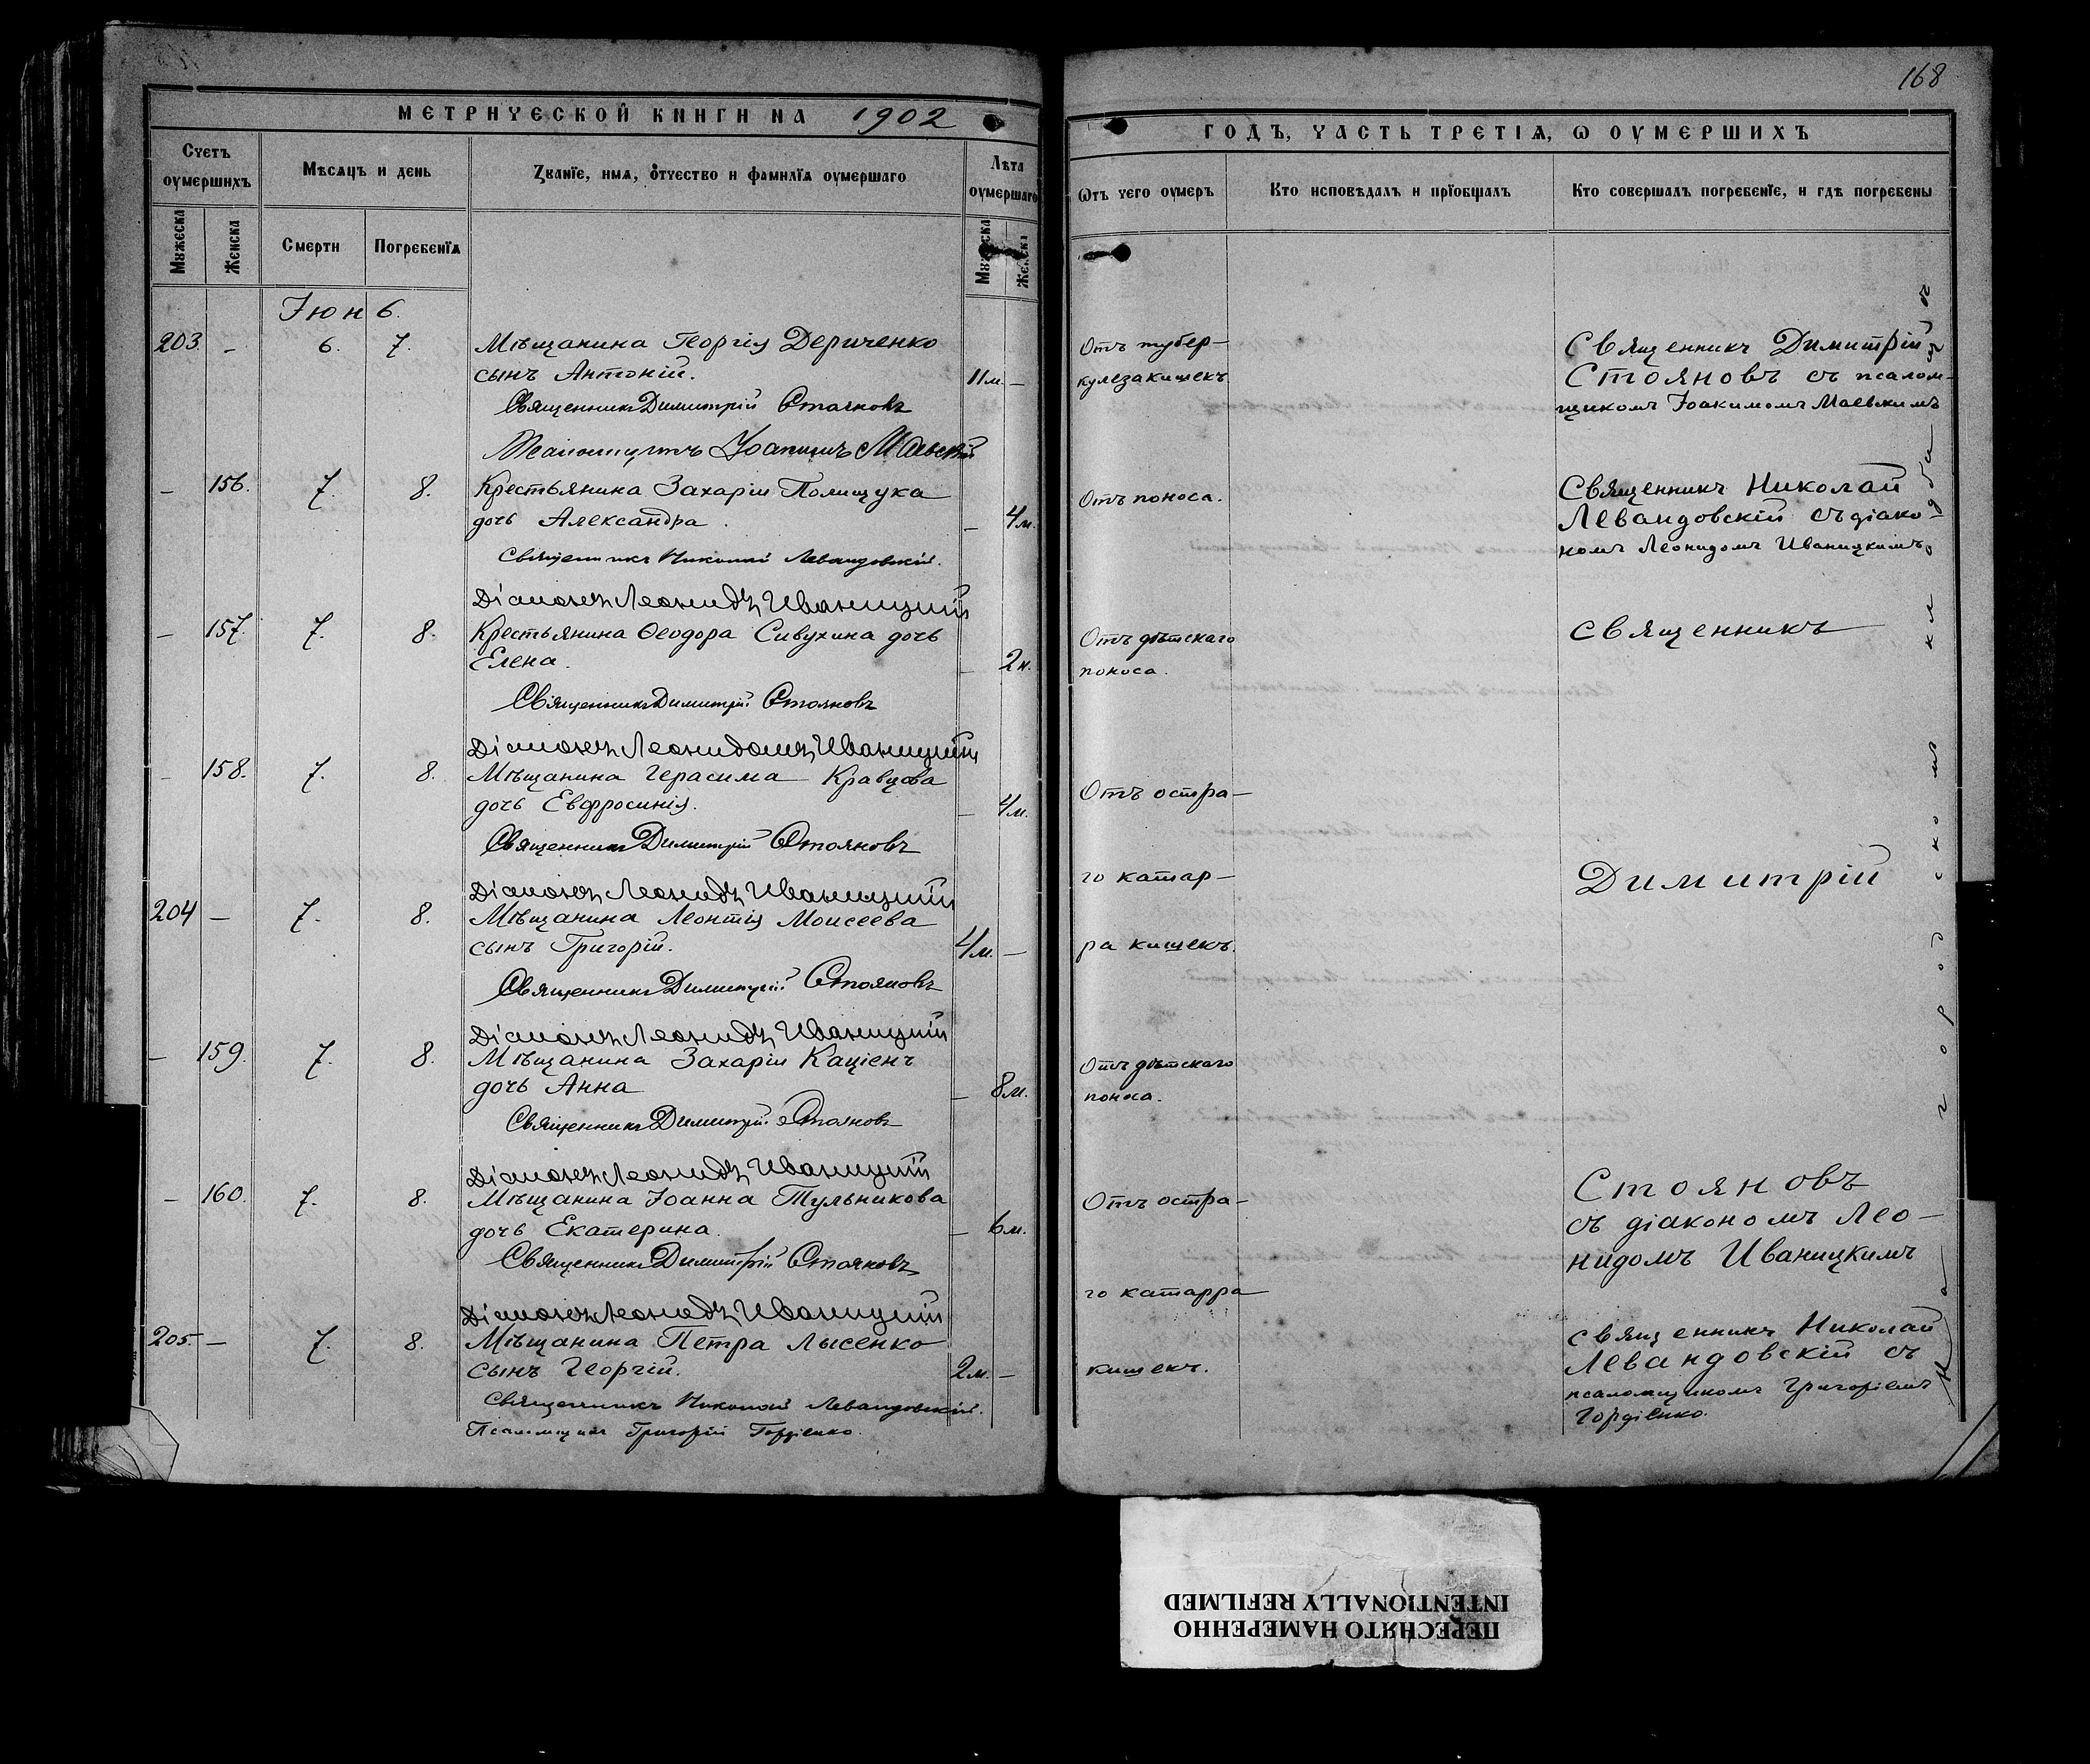 168
МЕТРИЧЕСКОЙ КНИГИ НА 1902
ГОДЪ, ЧАСТЬ ТРЕТІѦ, Ѡ ОУМЕРШИХЪ
Счетъ оумершихъ
Мѣсяцъ и день
Званїе, имѧ, отчество и фамилїѧ оумершаго
Лѣта оумершаго
Ѿтъ чего оумеръ
Кто исповѣдалъ и прїобщалъ
Кто совершалъ погребенїе, и гдѣ погребены
Мужеска
Женска
Смерти
Погребенїѧ
Мужеска
Женска
Іюнь
203. — 6. 7. Мѣщанина Георгія Дериченко
сынъ Антоній. 11 м. —
Священникъ Димитрій Стояновъ
Псаломщикъ Іоакимъ Маевскій
Отъ тубер-
кулеза кишекъ
Священникъ Димитрій
Стояновъ съ псалом-
щикомъ Іоакимомъ Маевскимъ
— 156. 7. 8. Крестьянина Захаріи Полищука
дочь Александра. — 4 м.
Священникъ Николай Левандовскій.
Діаконъ Леонидъ Иваницкій
Отъ поноса.
Священникъ Николай
Левандовскій съ діако-
номъ Леонидомъ Иваницкимъ
— 157. 7. 8. Крестьянина Ѳеодора Сивухина дочь
Елена. — 2 н.
Священникъ Димитрій Стояновъ
Діаконъ Леонидомъ Иваницкій
Отъ дѣтскаго
поноса.
Священникъ
— 158. 7. 8. Мѣщанина Герасима Кравцова
дочь Евфросинія. — 4 м.
Священникъ Димитрій Стояновъ
Діаконъ Леонидъ Иваницкій
Отъ остра-
204 — 7. 8. Мѣщанина Леонтія Моисеева
сынъ Григорій. 4 м. —
Священникъ Димитрій Стояновъ
Діаконъ Леонидъ Иваницкій
го катар-
ра кишекъ.
Димитрій
— 159. 7. 8. Мѣщанина Захаріи Каціенъ
дочь Анна — 8 м.
Священникъ Димитрій Стояновъ
Діаконъ Леонидъ Иваницкій
Отъ дѣтскаго
поноса.
— 160. 7. 8. Мѣщанина Іоанна Тульникова
дочь Екатерина. — 6 м.
Священникъ Димитрій Стояновъ
Діаконъ Леонидъ Иваницкій
Отъ остра-
го катарра
Стояновъ
съ діакономъ Лео-
нидомъ Иваницкимъ
205. — 7. 8. Мѣщанина Петра Лысенко
сынъ Георгій. 2 м. —
Священникъ Николай Левандовскій.
Псаломщикъ Григорій Гордіенко.
кишекъ.
Священникъ Николай
Левандовскій съ
псаломщикомъ Григоріемъ
Гордіенко.
На городскомъ кладбищѣ
ПЕРЕСНЯТО НАМЕРЕННО
INTENTIONALLY REFILMED